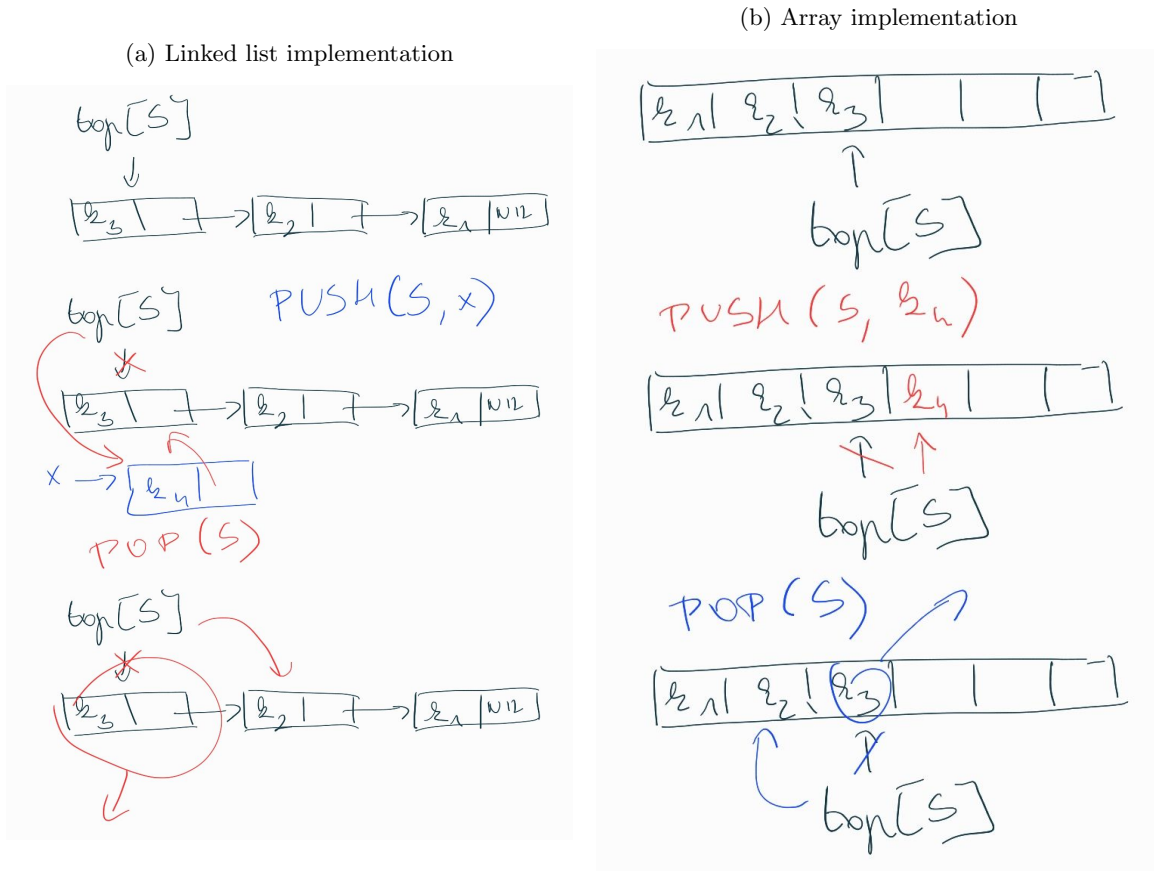 (a) Linked list implementation
top[S]
k3 k2 k1 NIL
top[S] PUSH(S, x)
k3 k2 k1 NIL
x k4
POP(S)
top[S]
k3 k2 k1 NIL
(b) Array implementation
k1 k2 k3
top[S]
PUSH(S, k4)
k1 k2 k3 k4
top[S]
POP(S)
k1 k2 k3
top[S]